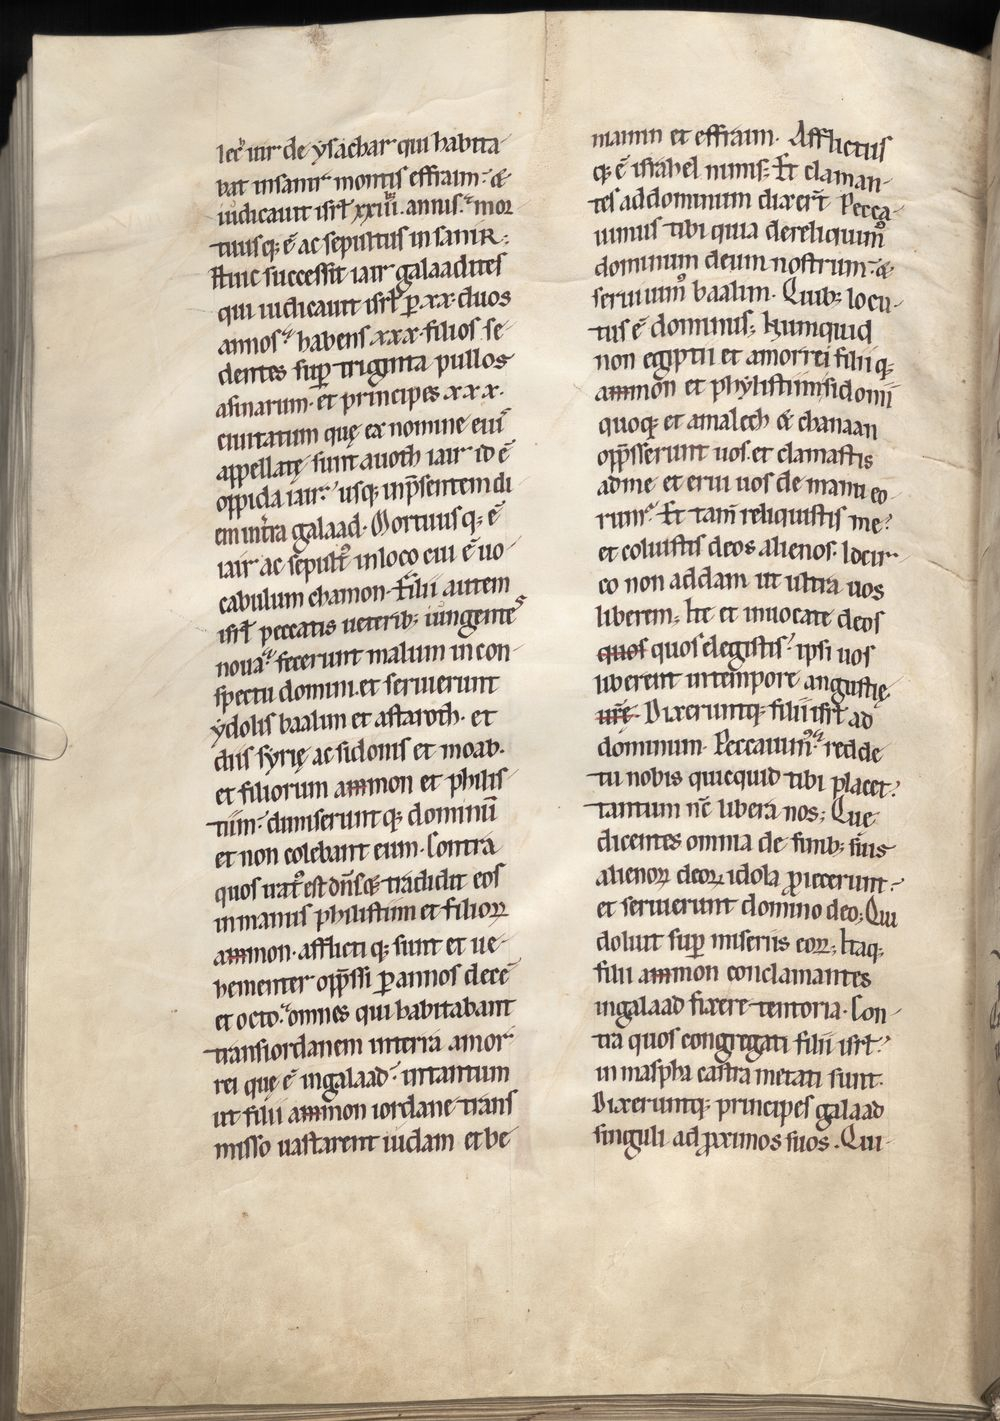 lecͥ uir de ysachar qui habita
bat in sanir montis effraim· &
iudicauit isrl̄ xxiii. annis· mor
tuusq; ē ac sepultus in sanir;
Huic successit iair galaadites
qui iudicauit isrl̄ p̱ xx· duos
annos· habens xxx· filios se
dentes sup̱ triginta pullos
asinarum· et principes xxx·
ciuitatum quę ex nomine eiuˀ
appellatę sunt auoth iair id ē
oppida iair· usq; inp̄sentem di
em in tr̄a galaad· Mortuusq; ē
iair ac sepultˀ in loco cui ē uo
cabulum chamon· Filii autem
isrl̄ peccatis ueterib; iungentes
noua· fecerunt malum in con
spectu domini. et seruierunt
ydolis baalim et astaroth· et
diis syrię ac sidonis et moab·
et filiorum ammon et philis
tiim· dimiseruntq; dominū
et non colebant eum· Contra
quos iratˀ est dn̄s tradidit eos
in manus philistiim et filioꝝ
ammon· afflictiq; sunt et ue
hementer opp̄ssi p̱ annos decē
et octo· omnes qui habitabant
trans iordanem in terra amor
rei quę ē in galaad· in tantum
ut filii ammon iordane trans
misso uastarent iudam et be
niamin et effraim· Afflictus
q; ē israhel nimis; Et claman
tes ad dominum dixer̄t Pecca
uimus tibi quia dereliquimˀ
dominum deum nostrum· &
seruiuimˀ baalim· Quib; locu
tus ē dominus; Numquid
non egiptii et amorrei filiiq;
ammon et phylistiim sidonii
quoq; et amalech & chanaan
opp̄sserunt uos· et clamastis
ad me et erui uos de manu eo
rum· Et tam̄ reliquistis me?
et coluistis deos alienos· Idcir
co non addam ut ultra uos
liberem; Ite et inuocate deos
quos quos elegistis· ipsi uos
liberent in tempore angustię
ur̄ę· Dixeruntq; filii isrl̄ ad
dominum· Peccauimˀ· redde
tu nobis quicquid tibi placet?
tantum nc̄ libera nos; Que
dicentes omnia de finib; suis
alienoꝝ deoꝝ idola ꝓiecerunt?
et seruierunt domino deo; Qui
doluit sup̱ miseriis eoꝝ; Itaq;
filii ammon conclamantes
in galaad fixere tentoria· Con
tra quos congregati filii isrl̄?
in maspha castra metati sunt·
Dixeruntq; principes galaad
singuli ad ꝓximos suos· Qui